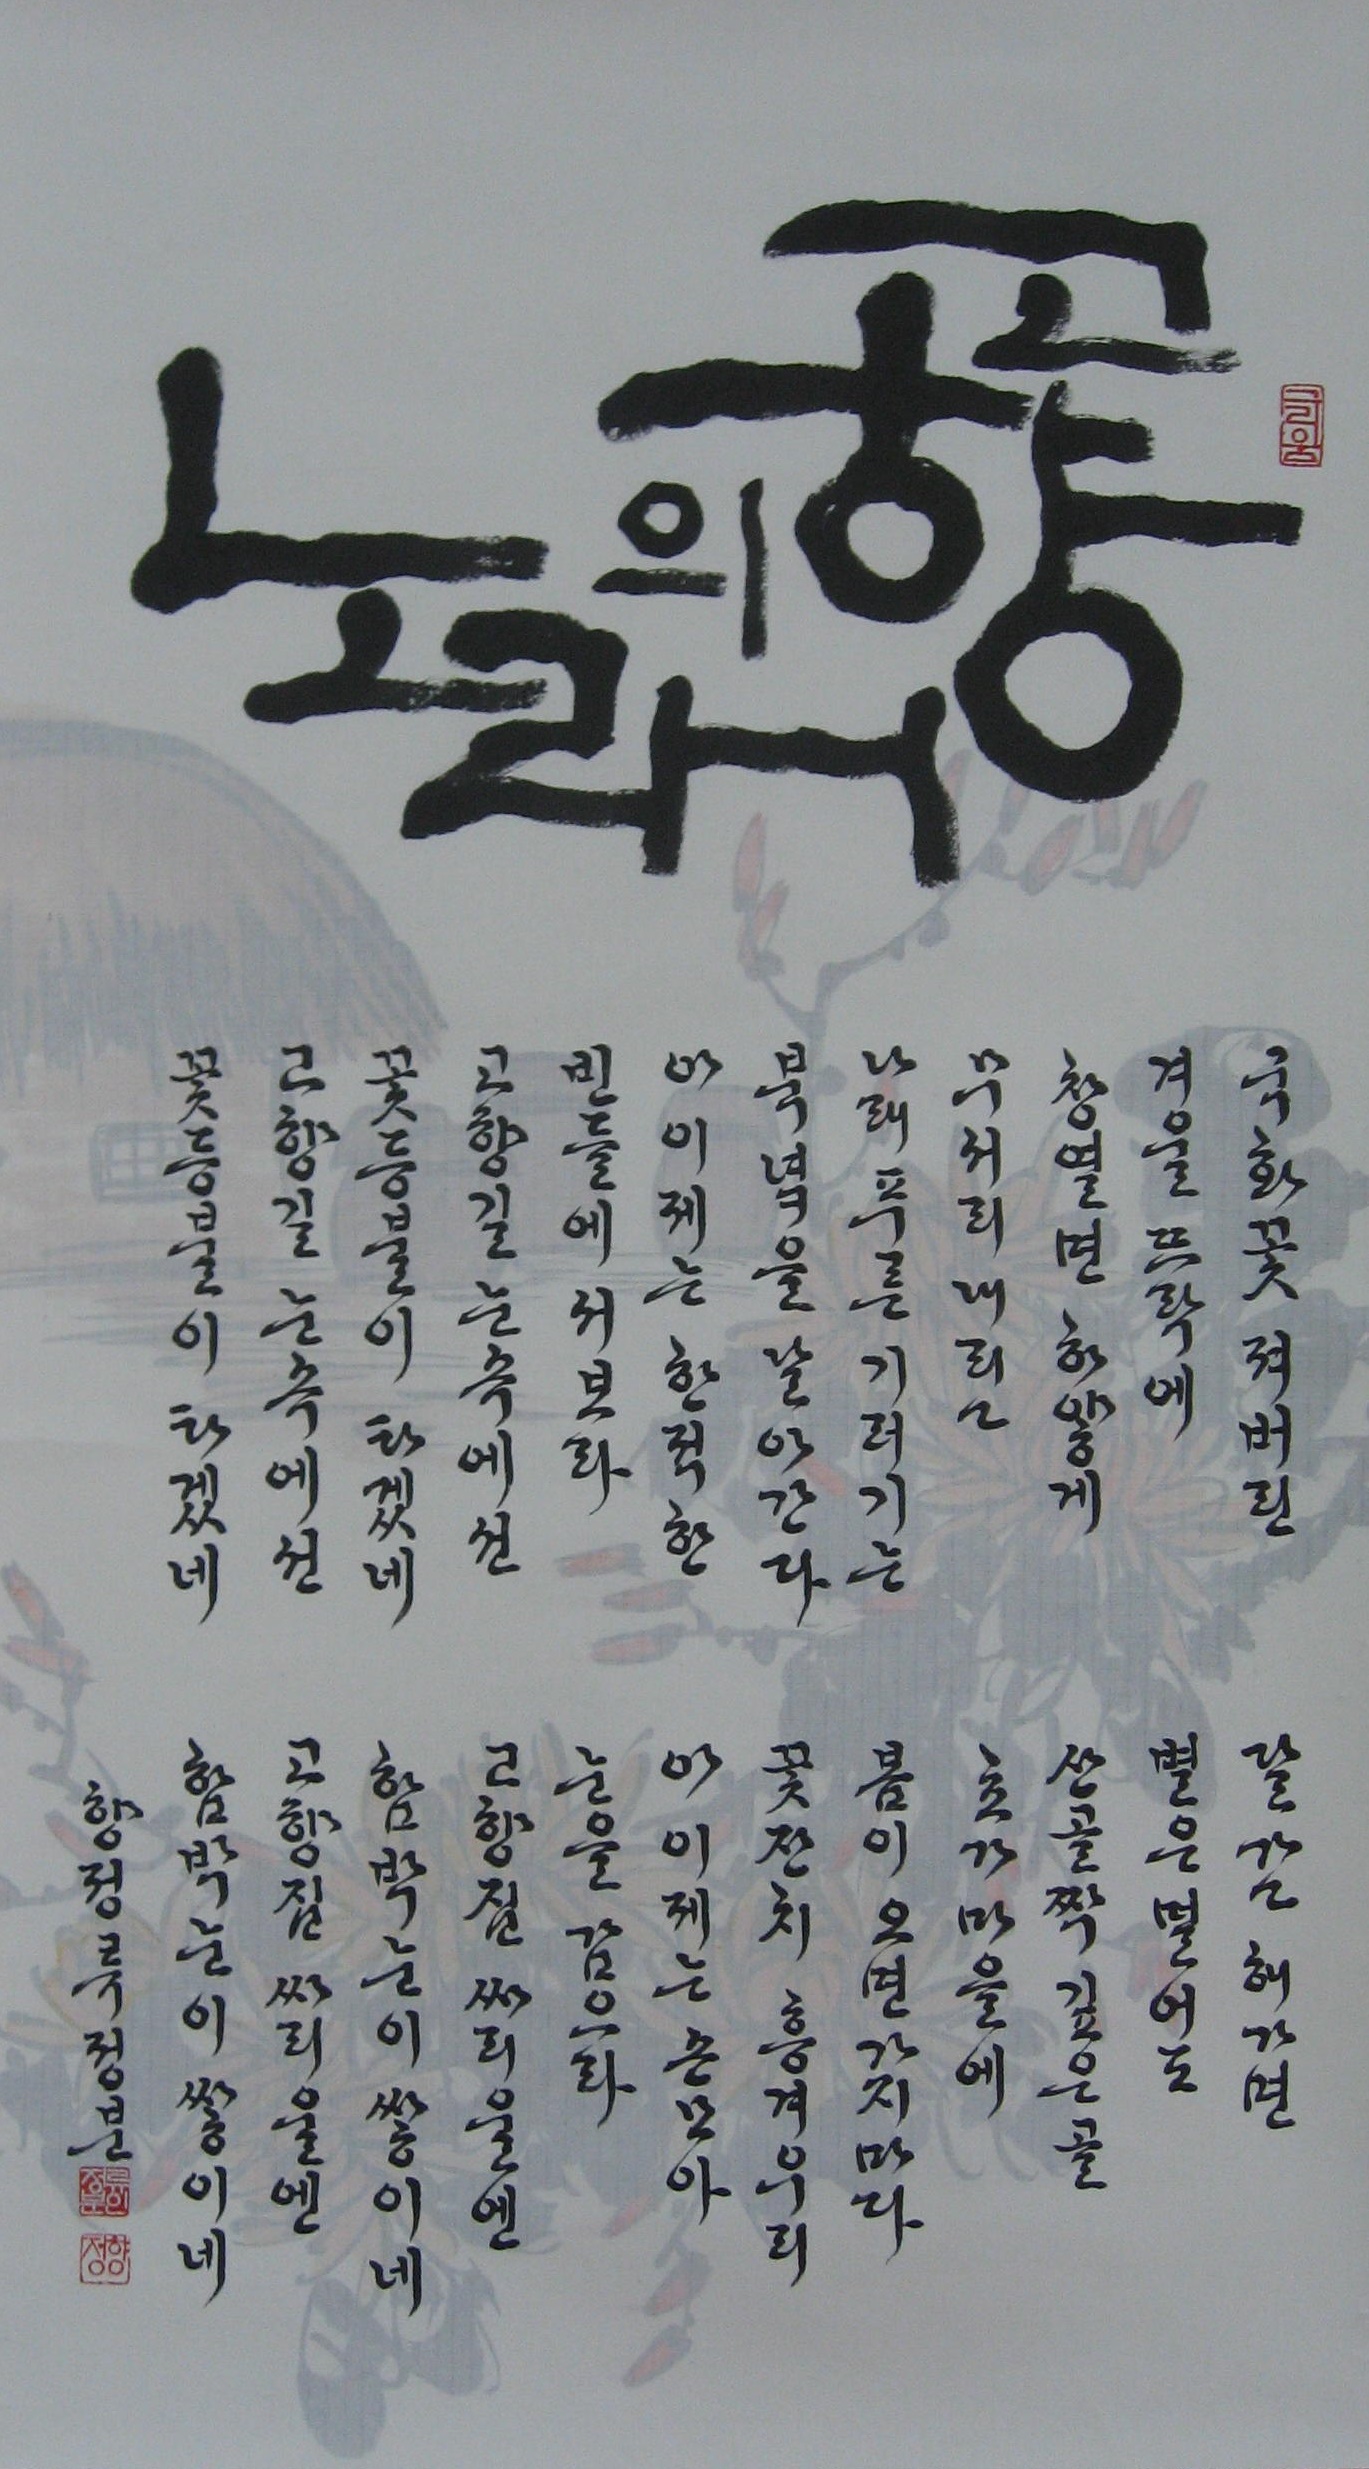 고향의
노래
국화꽃 져버린
겨울 뜨락에
창열면 하얗게
무서리 내리고
나래 푸른 기러기는
북녘을 날아간다
아 이제는 한적한
빈들에 서보라
고향길 눈속에선
꽃등불이 타겠네
고향길 눈속에선
꽃등불이 타겠네
달 가고 해가면
별은 멀어도
산골짝 깊은 골
초가 마을에
봄이 오면 가지마다
꽃잔치 흥겨우리
아 이제는 손모아
눈을 감으라
고향집 싸리울엔
함박눈이 쌓이네
고향집 싸리울엔
함박눈이 쌓이네
향정 류정분
향정